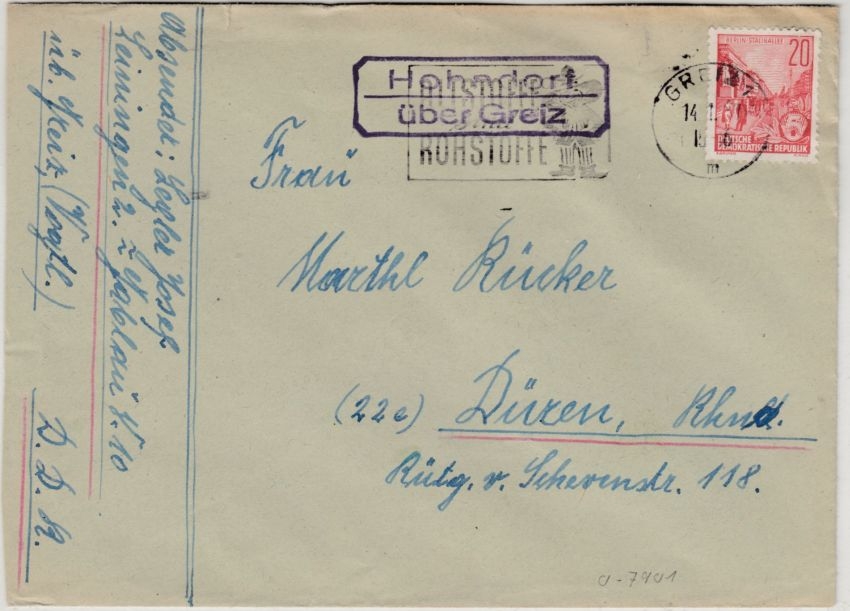 Absender: Legler Josef
üb. Greiz, (Vogtl.)
D. D. R.
Hohndorf
über Greiz
ROHSTOFFE
GREIZ
BERLIN-STALINALLEE
20
DEUTSCHE
DEMOKRATISCHE REPUBLIK
Frau
Marthl Rücker
(22c) Düren, Rhld.
Rütg. v. Schevenstr. 118.
a-7901